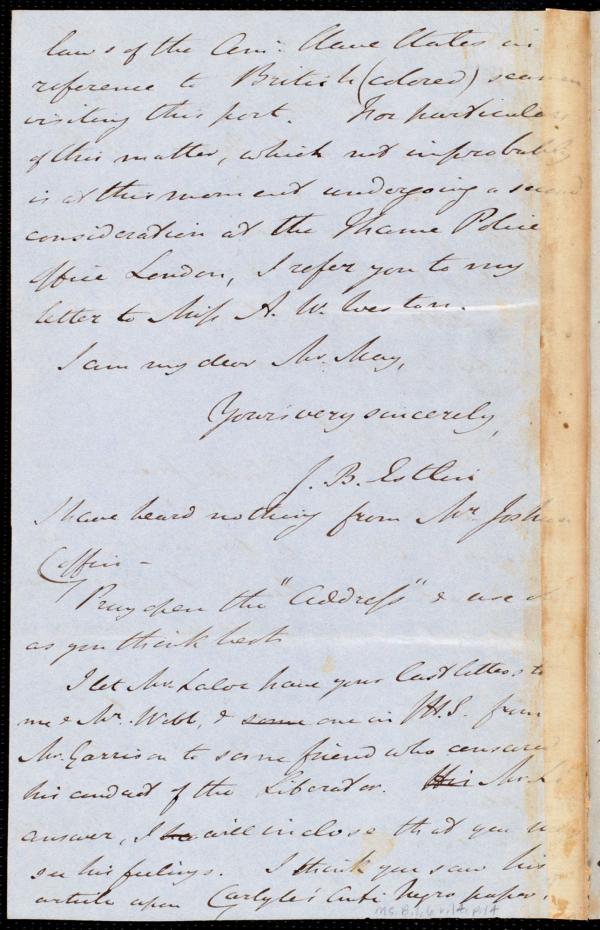 laws of the Am: Slave States in
reference to British (colored) seamen
visiting this port. For particulars
of this matter, which not improbably
is at this moment undergoing a second
consideration at the Thame Police
Office London, I refer you to my
letter to Miss A. W. Weston.
I am my dear Mr. May,
Yours very sincerely,
J. B. Estlin
I have heard nothing from Mr. Joshua
Coffin –
Pray open the "Address" & use it
as you think best
I let Mr. have your last letters to
me & Mr. Webb, & some one in from
Mr. Garrison to some friend who censured
his conduct of the Liberator. His Mr.
answer, I will inclose that you may
see his feelings. I think you saw his
article upon Carlyle's Anti Negro paper,